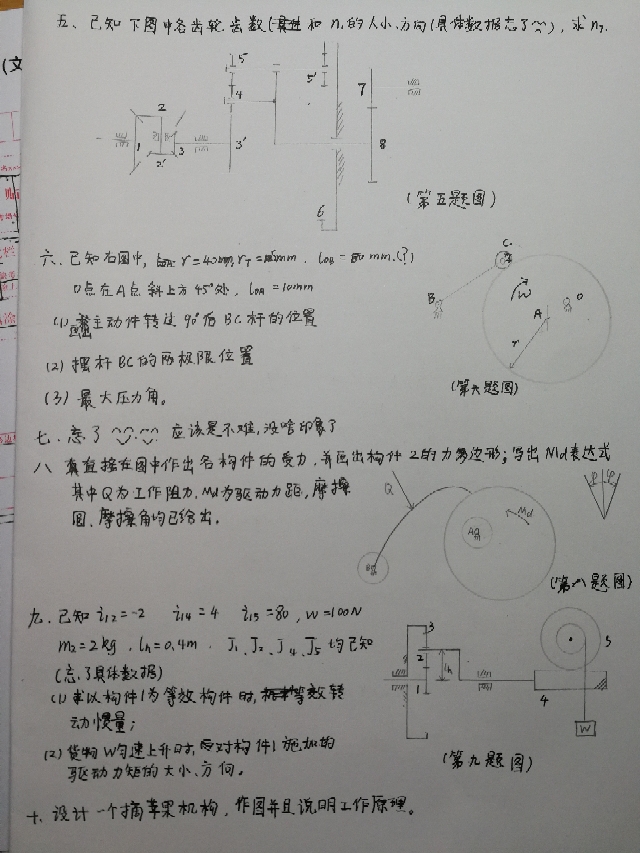 五、已知下图中各齿轮齿数( 和 n₁的大小、方向(具体数据忘了), 求n₇.
5
2
4
5'
7
1
2'
3
3'
8
6
(第五题图)
六、已知右图中, r=40mm, mm. mm.(?)
O点在A点斜上方45°处, lOA=10mm
(1) 主动件转过90°后BC杆的位置
(2) 摆杆BC的两极限位置
(3) 最大压力角。
C
B
W
A
O
r
(第六题图)
七、忘了 应该是不难,没啥印象了
八 直接在图中作出各构件的受力,并画出构件2的力多边形;写出Md表达式
其中Q为工作阻力,Md为驱动力距,摩擦
圆、摩擦角均已给出。
Q
Md
φ φ
A
B
(第八题图)
九、已知 i₁₂=-2 i₁₄=4 i₁₅=80, W=100N
m₂=2kg, lh=0.4m. J₁、J₂、J₄、J₅ 均已知
(忘了具体数据)
(1) 求以构件1为等效构件时, 等效转
动惯量;
(2) 货物W匀速上升时,应对构件1施加的
驱动力矩的大小、方向。
3
2
lh
1
4
5
W
(第九题图)
十、设计一个摘苹果机构,作图并且说明工作原理。